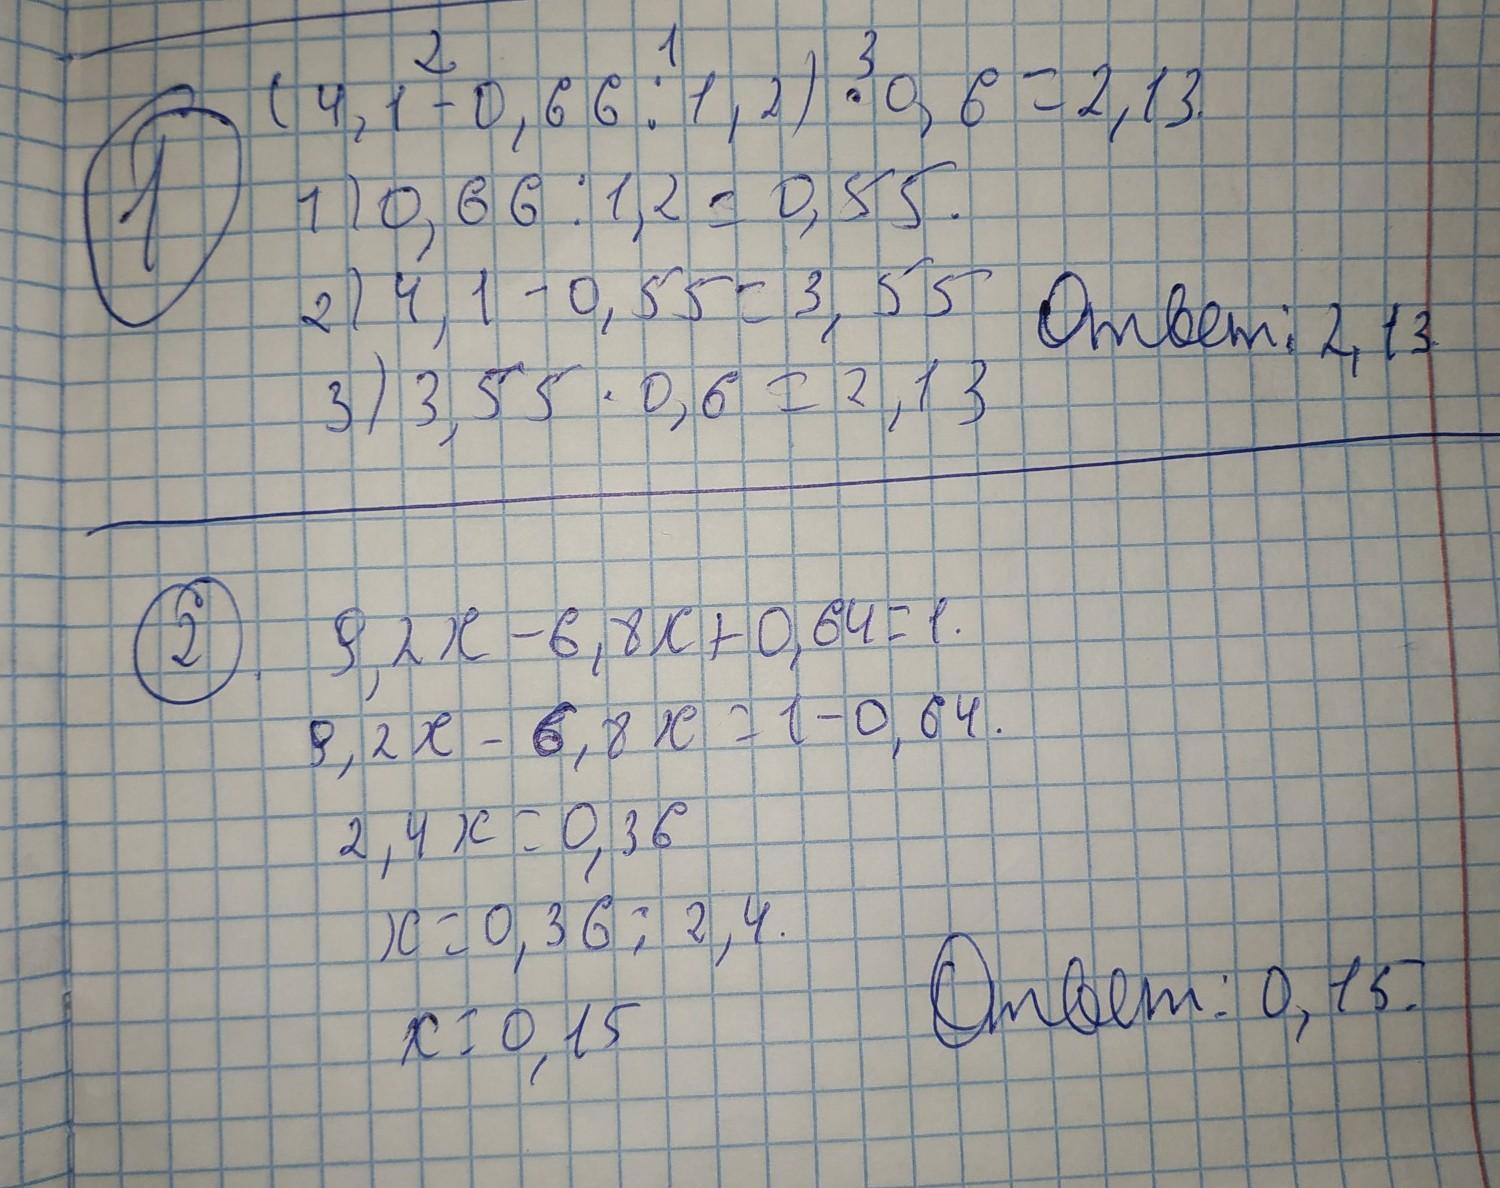 2 1 3
1 (4,1-0,66:1,2)·0,6=2,13.
1) 0,66:1,2=0,55.
2) 4,1-0,55=3,55
Ответ: 2,13
3) 3,55·0,6=2,13
2 9,2x-6,8x+0,64=1.
9,2x-6,8x=1-0,64.
2,4x=0,36
x=0,36:2,4.
x=0,15
Ответ: 0,15.